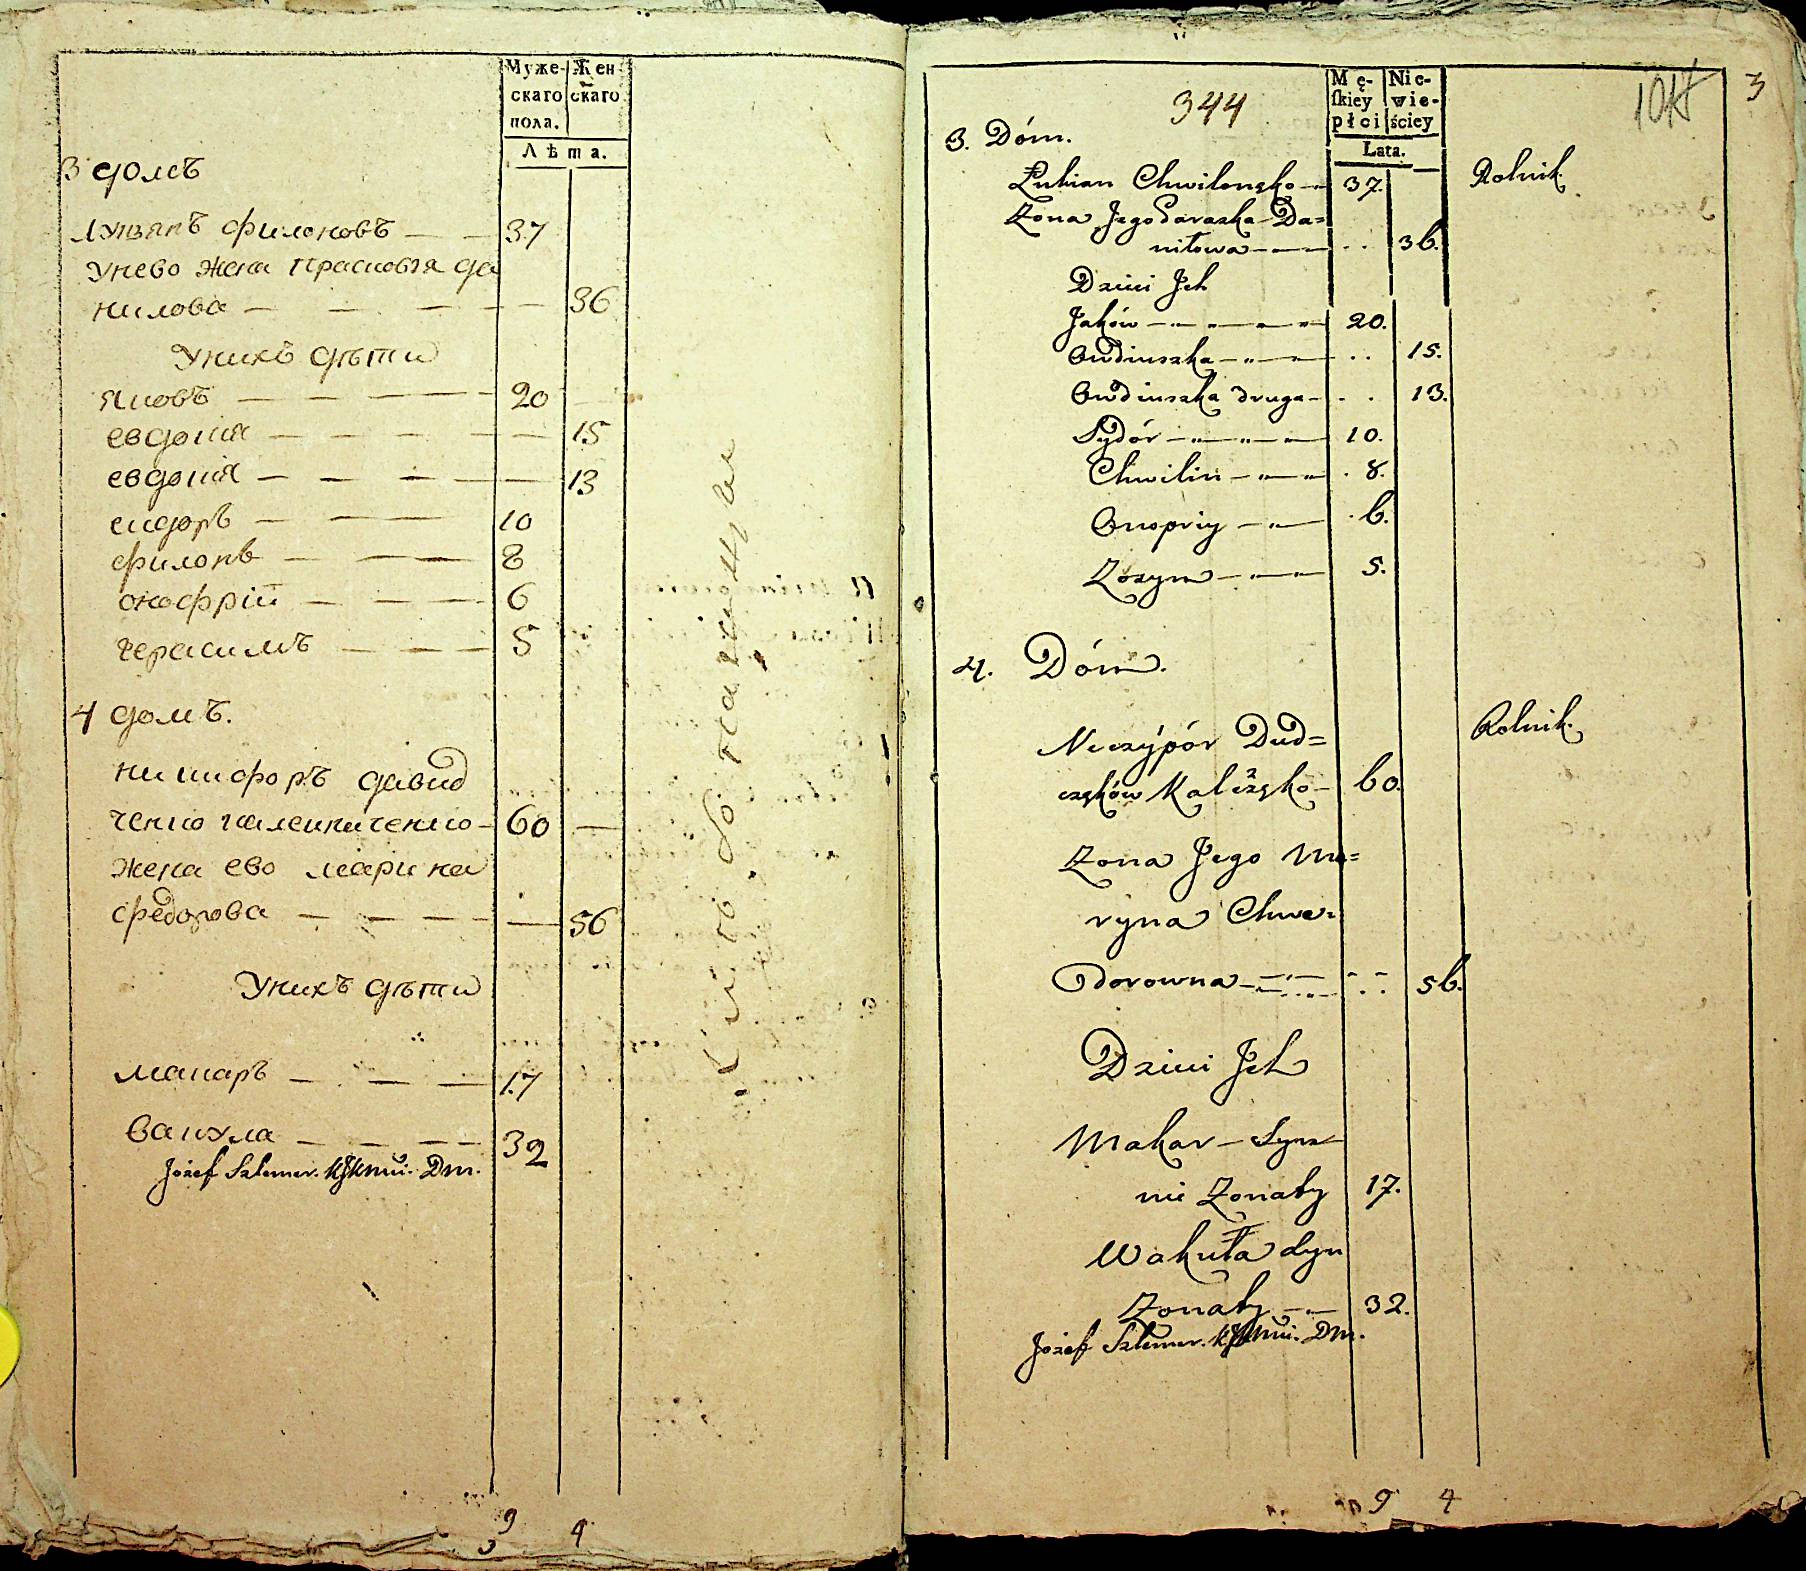 Муже-
скаго
пола.
Жен-
скаго
Лѣта.
3 домъ
Лукянъ филоновъ — — 37
Унево жена прасковѣя да
нилова — — — — 36
Унихъ дѣти
яковъ — — — 20
евдокия — — — — — 15
евдокия — — — — — 13
сидоръ — — 10
филонъ — — 8
онофрій — — — 6
герасимъ — — — 5
4 домъ.
никифоръ давид
ченко — 60 —
жена ево марина
федорова — — — — — 56
Унихъ дѣти
макаръ — — — 17
вакула — — — — 32
Józef Szlemer. Dm.
9 4
344
3
Mę-
skiey
płci
Nie-
wie-
ściey
Lata.
3. Dóm.
Łukian Chwilonsko — 37. Rolnik.
Żona Jego Paraska Da=
niłowa — — .. 36.
Dzieci Ich
Jaków — " — " — 20.
Owdiuszka — " — " .. 15.
Owdiuszka druga — . . 13.
Sydór — " — " — 10.
Chwilin — " — " . 8.
Onopriy — " — . 6.
Zosym — " — 5.
4. Dóm.
Neczýpór Dud= Rolnik.
60.
Żona Jego Ma=
ryna Chwe=
dorowna — .. 56.
Dzieci Ich
Makar — Syn
nie Żonaty 17.
Wakuła Syn
Żonaty — " — 32.
Józef Szlemer. Dm.
9 4